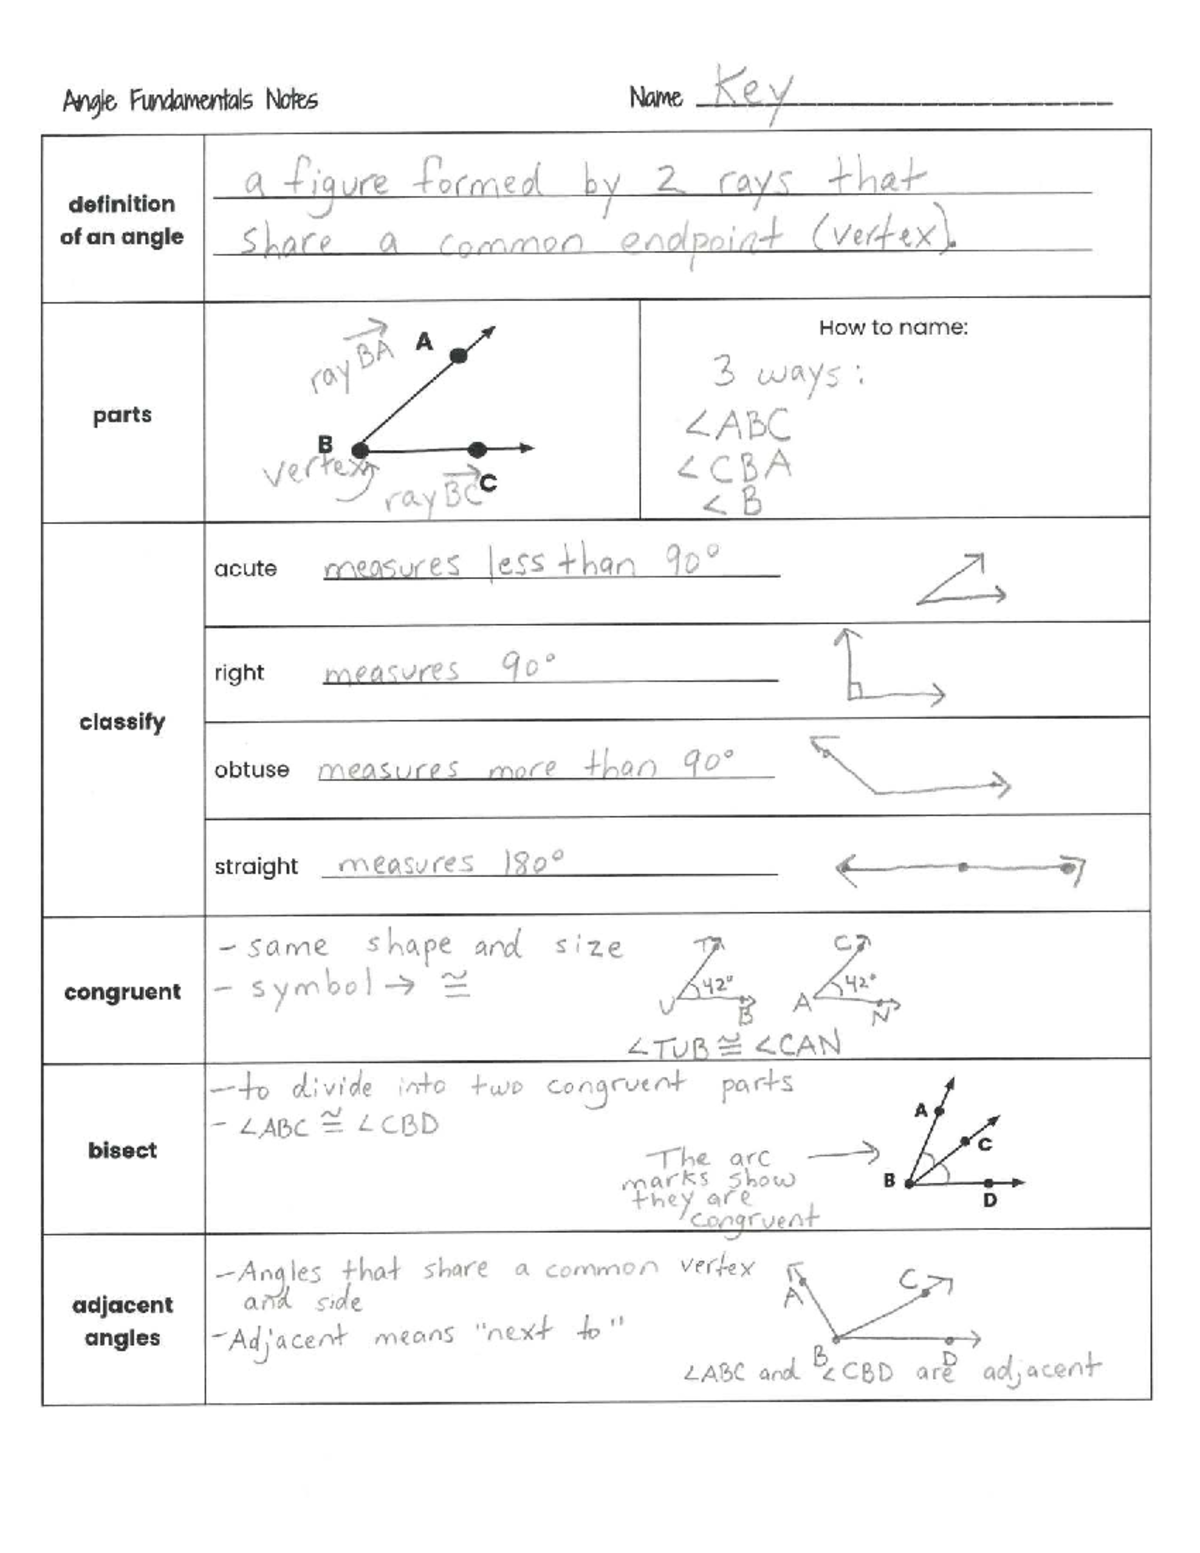 Angle Fundamentals Notes
Name Key
definition
of an angle
a figure formed by 2 rays that
share a common endpoint (vertex).
parts
ray BA
A
B
vertex
ray BC
C
How to name:
3 ways:
∠ABC
∠CBA
∠B
classify
acute measures less than 90°
right measures 90°
obtuse measures more than 90°
straight measures 180°
congruent
- same shape and size
- symbol → ≅
T
U
B
42°
C
A
N
42°
∠TUB ≅ ∠CAN
bisect
- to divide into two congruent parts
- ∠ABC ≅ ∠CBD
The arc
marks show
they are
congruent
A
C
B
D
adjacent
angles
- Angles that share a common vertex
and side
- Adjacent means "next to"
A
C
B
D
∠ABC and ∠CBD are adjacent